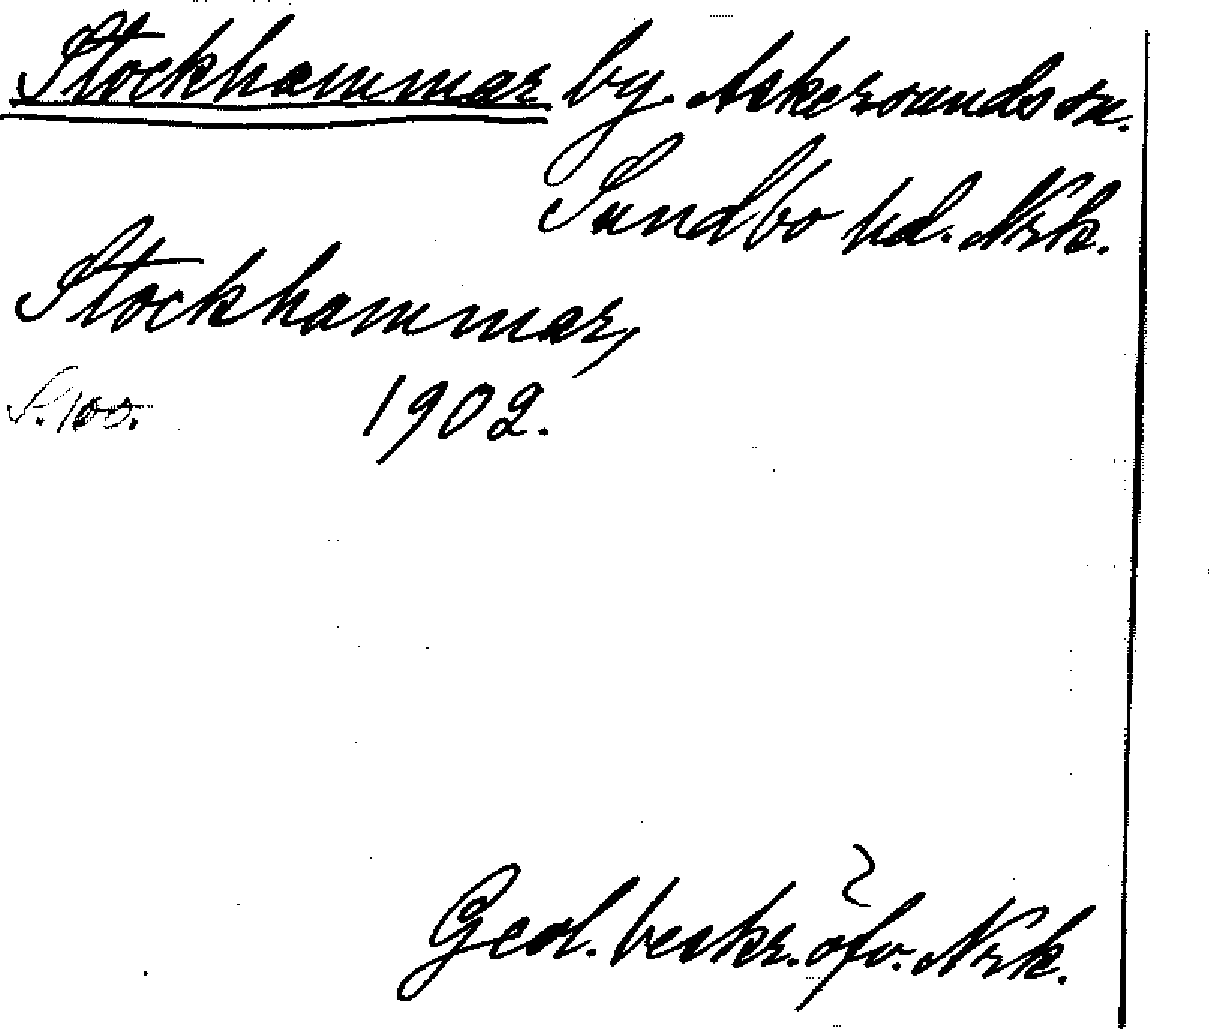 Stockhammar by. Askersunds sn.
Sundbo hd. Nrk.
Stockhammar,
S. 100. 1902.
Geol. beskr. öfv. Nrk.